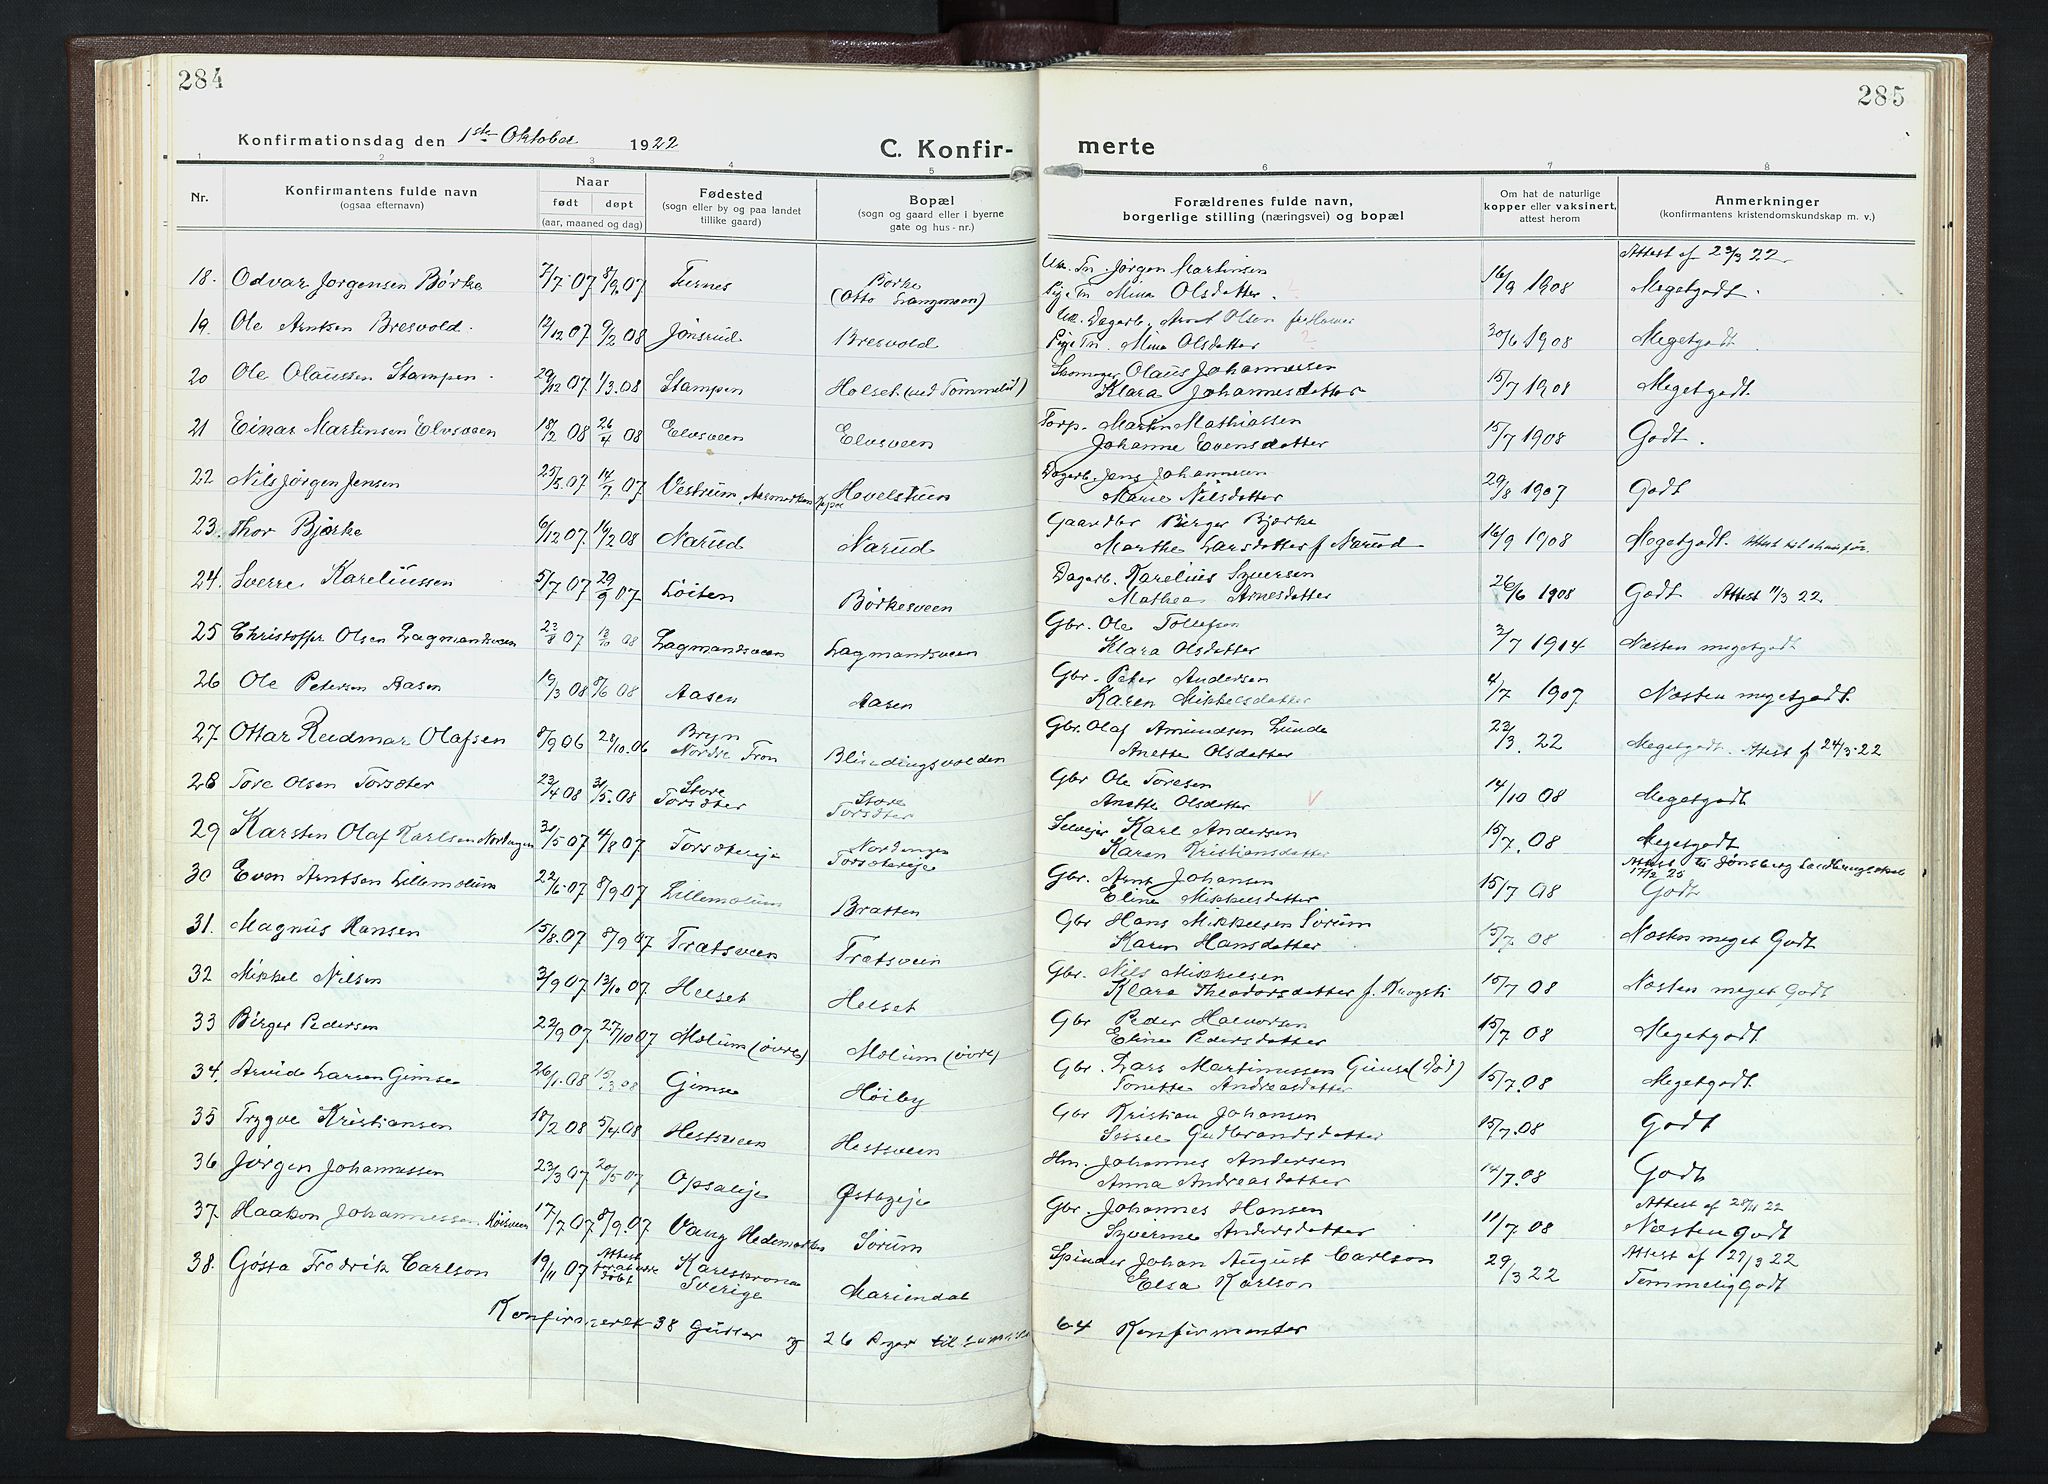 284
285
Konfirmationsdag den 1ste Oktober 1922
C. Konfir-
merte
1 2 3 4 5 6 7 8
Nr.
Konfirmantens fulde navn
(ogsaa efternavn)
Naar
født døpt
(aar, maaned og dag)
Fødested
(sogn eller by og paa landet
tillike gaard)
Bopæl
(sogn og gaard eller i byerne
gate og hus-nr.)
Forældrenes fulde navn,
borgerlige stilling (næringsvei) og bopæl
Om hat de naturlige
kopper eller vaksinert,
attest herom
Anmerkninger
(konfirmantens kristendomskundskap m. v.)
Attest af 29/3 22
18. Odvar Jørgensen Børke 7/7-07 8/9.07 Furnes Børke Jørgen Martinsen 16/9 1908 Megetgodt.
(Otto Langmoen) Pige Mina Olsdatter.
19. Ole Arntsen Bresvold. 12/12 07 9/2 08 Jønsrud Bresvold Dagarb. Arnt Olsen 30/6 1908 Megetgodt.
Pige Mina Olsdatter
20 Ole Olaussen Stampen. 29/12 07 1/3.08 Stampen Holset (ved Tommelsl) Skomager Olaus Johannessen 15/7 1908 Megetgodt.
Klara Johannesdatter
21 Einar Martinsen Elvsveen 18/2 08 26/4 08 Elvsveen Elvsveen Torp. Martin Mathiassen 15/7 1908 Godt.
Johanne Evensdatter
22 Nils Jørgen Jensen 25/5.07 14/7.07 Vestrum, Aasmarken Hovelstuen Dagarb. Jens Johannesen 29/8 1907 Godt
Marie Nilsdatter
23. Thor Bjørke 6/12 07 16/2 08 Narud Narud Gaardbr Birger Bjørke 16/9 1908 Megetgodt.
Marthe Larsdatter f. Narud
24. Sverre Kareliussen 5/7 07 29/9 07 Løiten Børkesveen Dagarb. Karelius Syversen 26/6 1908 Godt Attest 11/3 22
Mathea Arnesdatter
25 Christoffer Olsen Lagmandsveen 23/8 07 08 Lagmandsveen Lagmandsveen Gbr. Ole Tollefsen 3/7 1914 Næsten megetgodt
Klara Olsdatter
26 Ole Petersen Aasen 19/3 08 8/6 08 Aasen Aasen Gbr. Peter Andersen 4/7 1907 Næsten megetgodt.
Karen Mikkelsdatter
27. Ottar Reidmar Olafsen 8/9 06 28/10.06 Bryn Gbr. Olaf Amundsen Lunde 22/3. 22 Megetgodt. Attest f 24/3-22
Nordre Fron Blindingsvolden Anette Olsdatter
28 Tore Olsen Torsæter 23/4 08 31/5.08 Store Store Gbr Ole Toresen 14/10 08 Megetgodt
Torsæter Torsæter Anette Olsdatter
29 Karsten Olaf Karlsen Nordengen 30/5 07 4/8 07 Torsætereje Nordengen Selvejer Karl Andersen 15/7.08 Megetgodt
Torsætereje Karen Kristiansdatter
Attest til Jønsberg Landbrugsskole
17/2 25
30 Even Arntsen Lillemolum 22/6-07 8/9 07 Lillemolum Bratten Gbr. Arnt Johansen 15/7 08 Godt
Eline Mikkelsdatter
31. Magnus Hansen 15/8.07 8/9 07 Trætsveen Trætsveen Gbr Hans Mikkelsen Sørum 15/7 08 Næsten meget Godt
Karen Hansdatter
32 Mikkel Nilsen 3/9 07 13/10 07 Helset Helset Gbr. Nils Mikkelsen 15/7 08 Næsten meget Godt
Klara Theodorsdatter f.
33 Birger Pedersen 22/9 07 27/10 07 Molum (øvre) Molum (øvre) Gbr Peder Halvorsen 15/7. 08 Megetgodt
Eline Pedersdatter
34. Arvide Larsen Gimse 26/1.08 15/3 08 Gimse Høiby Gbr. Lars Martinussen Gimse (død) 15/7.08 Megetgodt.
Tonette Andreasdatter
35 Trygve Kristiansen 18/2 08 5/4.08 Hestsveen Hestsveen Gbr Kristian Johansen 15/7.08 Godt
Sessel Gudbrandsdatter
36 Jørgen Johannessen 23/3 07 20/5 07 Opsaleje Østageje Hm. Johannes Andersen 14/7.08 Godt
Anna Andreasdatter
Attest af 28/11 22
37. Haakon Johannessen 17/7 07 8/9.07 Vang Hedemarken Sørum Gbr. Johannes Hansen 11/7.08 Næsten Godt
Syverine Andersdatter
38. Gøsta Fredrik Carlson 19/11 07 Attest Karlskrona Mariendal Spinder Johan August Carlson 29/3 22 Attest af 27/3 22
Sverige Elsa Karlson Temmelig Godt
Konfirmerte 38 Gutter og 26 Piger til sammen 64 Konfirmanter